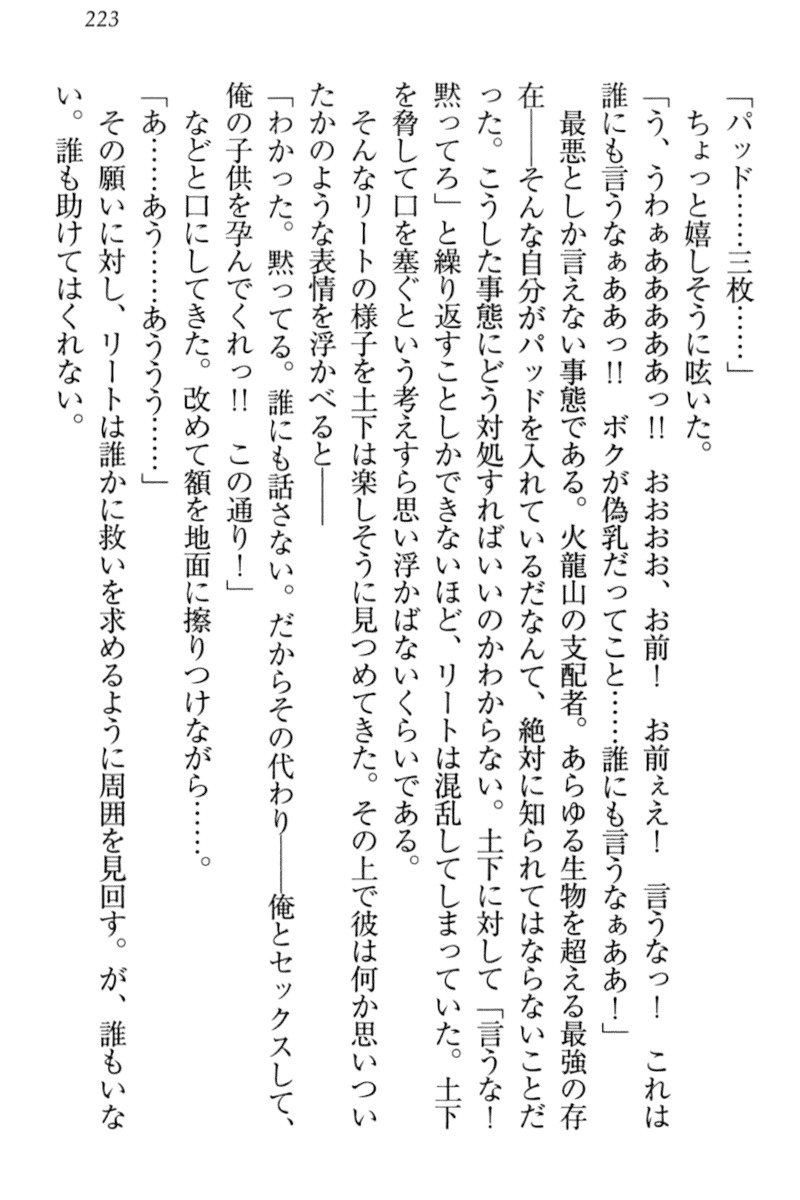 223
「パッド……三枚……」
ちょっと嬉しそうに呟いた。
「う、うわぁあああああっ!! おおおお、お前! お前ぇえ! 言うなっ! これは
誰にも言うなぁああっ!! ボクが偽乳だってこと……誰にも言うなぁああ!」
最悪としか言えない事態である。火龍山の支配者。あらゆる生物を超える最強の存
在――そんな自分がパッドを入れているだなんて、絶対に知られてはならないことだ
った。こうした事態にどう対処すればいいのかわからない。土下に対して「言うな!
黙ってろ」と繰り返すことしかできないほど、リートは混乱してしまっていた。土下
を脅して口を塞ぐという考えすら思い浮かばないくらいである。
そんなリートの様子を土下は楽しそうに見つめてきた。その上で彼は何か思いつい
たかのような表情を浮かべると――
「わかった。黙ってる。誰にも話さない。だからその代わり――俺とセックスして、
俺の子供を孕んでくれっ!! この通り!」
などと口にしてきた。改めて額を地面に擦りつけながら……。
「あ……あう……あううう……」
その願いに対し、リートは誰かに救いを求めるように周囲を見回す。が、誰もいな
い。誰も助けてはくれない。